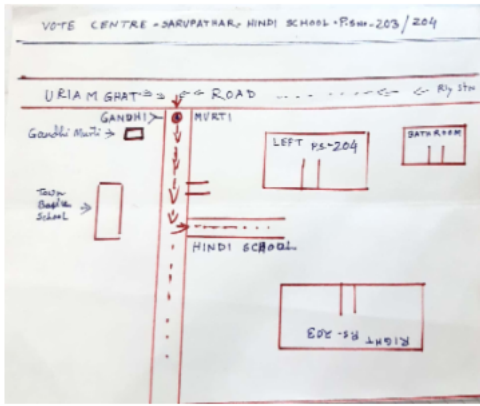 VOTE CENTRE - SARUPATHAR HINDI SCHOOL - P.S no - 203/204
URIAMGHAT ROAD Rly Stn
GANDHI MURTI
Gandhi Murti
LEFT P.S-204
BATHROOM
Town
School
HINDI SCHOOL
RIGHT P.S- 203